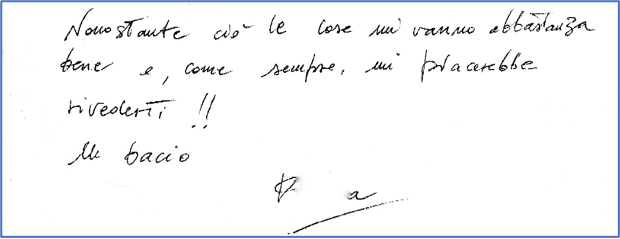 Nonostante ciò le cose mi vanno abbastanza
bene e, come sempre, mi piacerebbe
rivederti !!
Un bacio
a